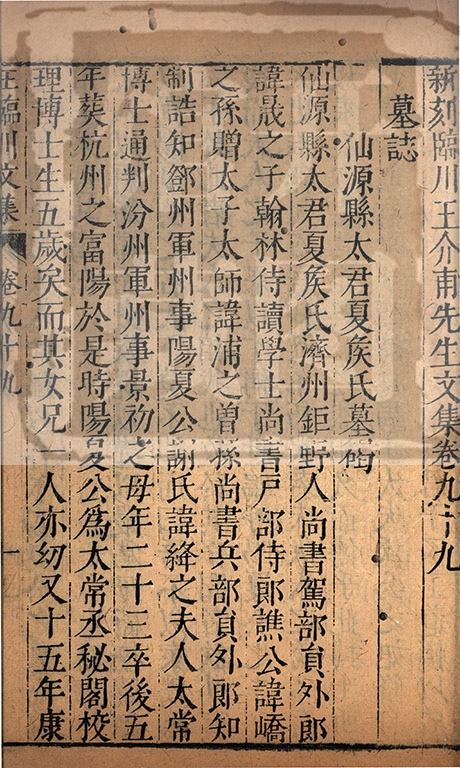 新刻臨川王介甫先生文集卷九十九
墓誌
仙源縣太君夏矦氏墓碣
仙源縣太君夏矦氏濟州鉅野人尚書駕部貟外郎
諱晟之子翰林侍讀學士尚書戸部侍郎譙公諱嶠
之孫贈太子太師諱浦之曽孫尚書兵部貟外郎知
制誥知鄧州軍州事陽夏公謝氏諱絳之夫人太常
博士通判汾州軍州事景初之母年二十三卒後五
年葬杭州之富陽於是時陽夏公爲太常丞秘閣校
理博士生五歲矣而其女兄一人亦幼又十五年康
王臨川文集 卷九十九 一